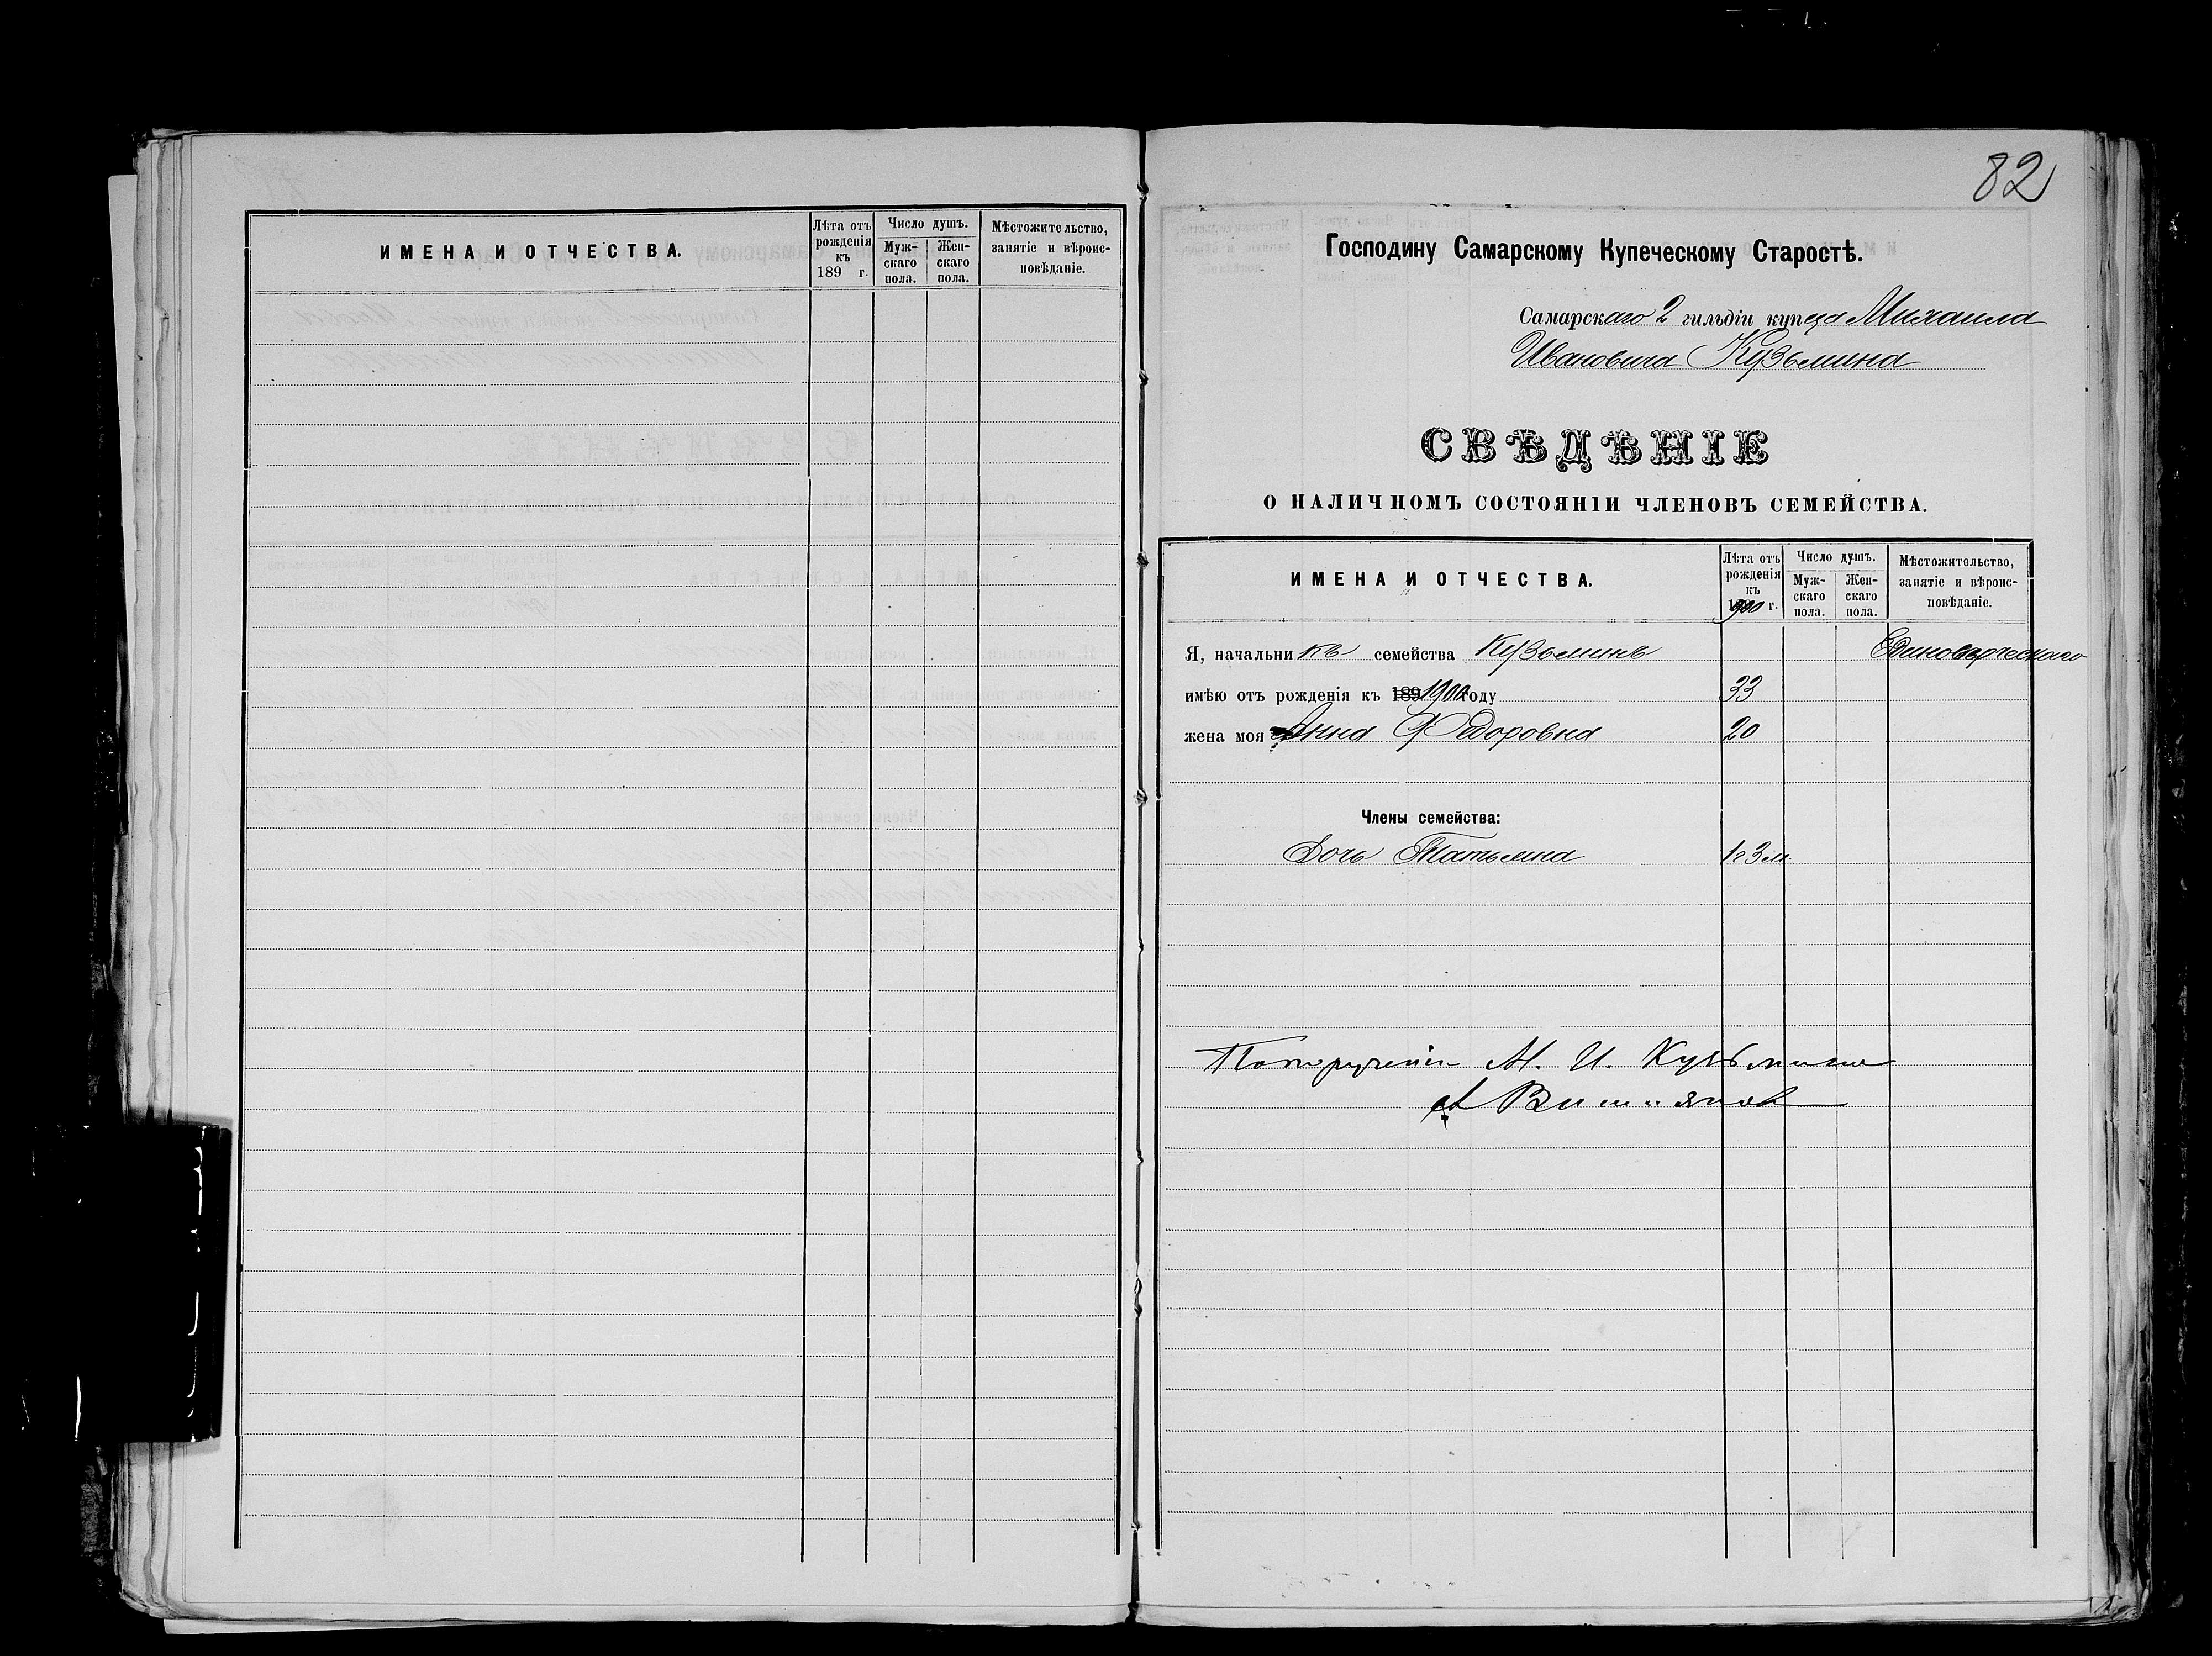 ИМЕНА И ОТЧЕСТВА.
Лѣта отъ рожденія къ 189 г.
Число душъ.
Мужскаго пола.
Женскаго пола.
Мѣстожительство, занятіе и вѣроисповѣданіе.
82
Господину Самарскому Купеческому Старостѣ.
Самарскаго 2 гильдіи купца Михаила
Ивановича Кузьмина
СВѢДѢНІЕ
О НАЛИЧНОМЪ СОСТОЯНІИ ЧЛЕНОВЪ СЕМЕЙСТВА.
ИМЕНА И ОТЧЕСТВА.
Лѣта отъ рожденія къ 1900 г.
Число душъ.
Мужскаго пола.
Женскаго пола.
Мѣстожительство, занятіе и вѣроисповѣданіе.
Я, начальникъ семейства Кузьминъ Единоверческаго
имѣю отъ рожденія къ 189 1900 году 33
жена моя Анна Федоровна 20
Члены семейства:
Дочь Татьяна 1 г 3 м.
М. И. Кузьмина